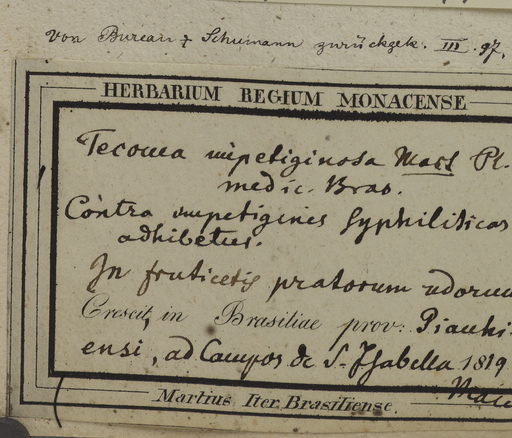 Von Bureau & Schumann zurückgek. III. 97.
HERBARIUM REGIUM MONACENSE
Tecoma impetiginosa Mart Pl.
medic. Bras.
Contra impetigines syphiliticas
adhibetur.
In fruticetis pratorum udorum
Crescit, in Brasiliae prov: Piauhi-
ensi, ad Campos de S. Isabella 1819
Martius Iter Brasiliense.